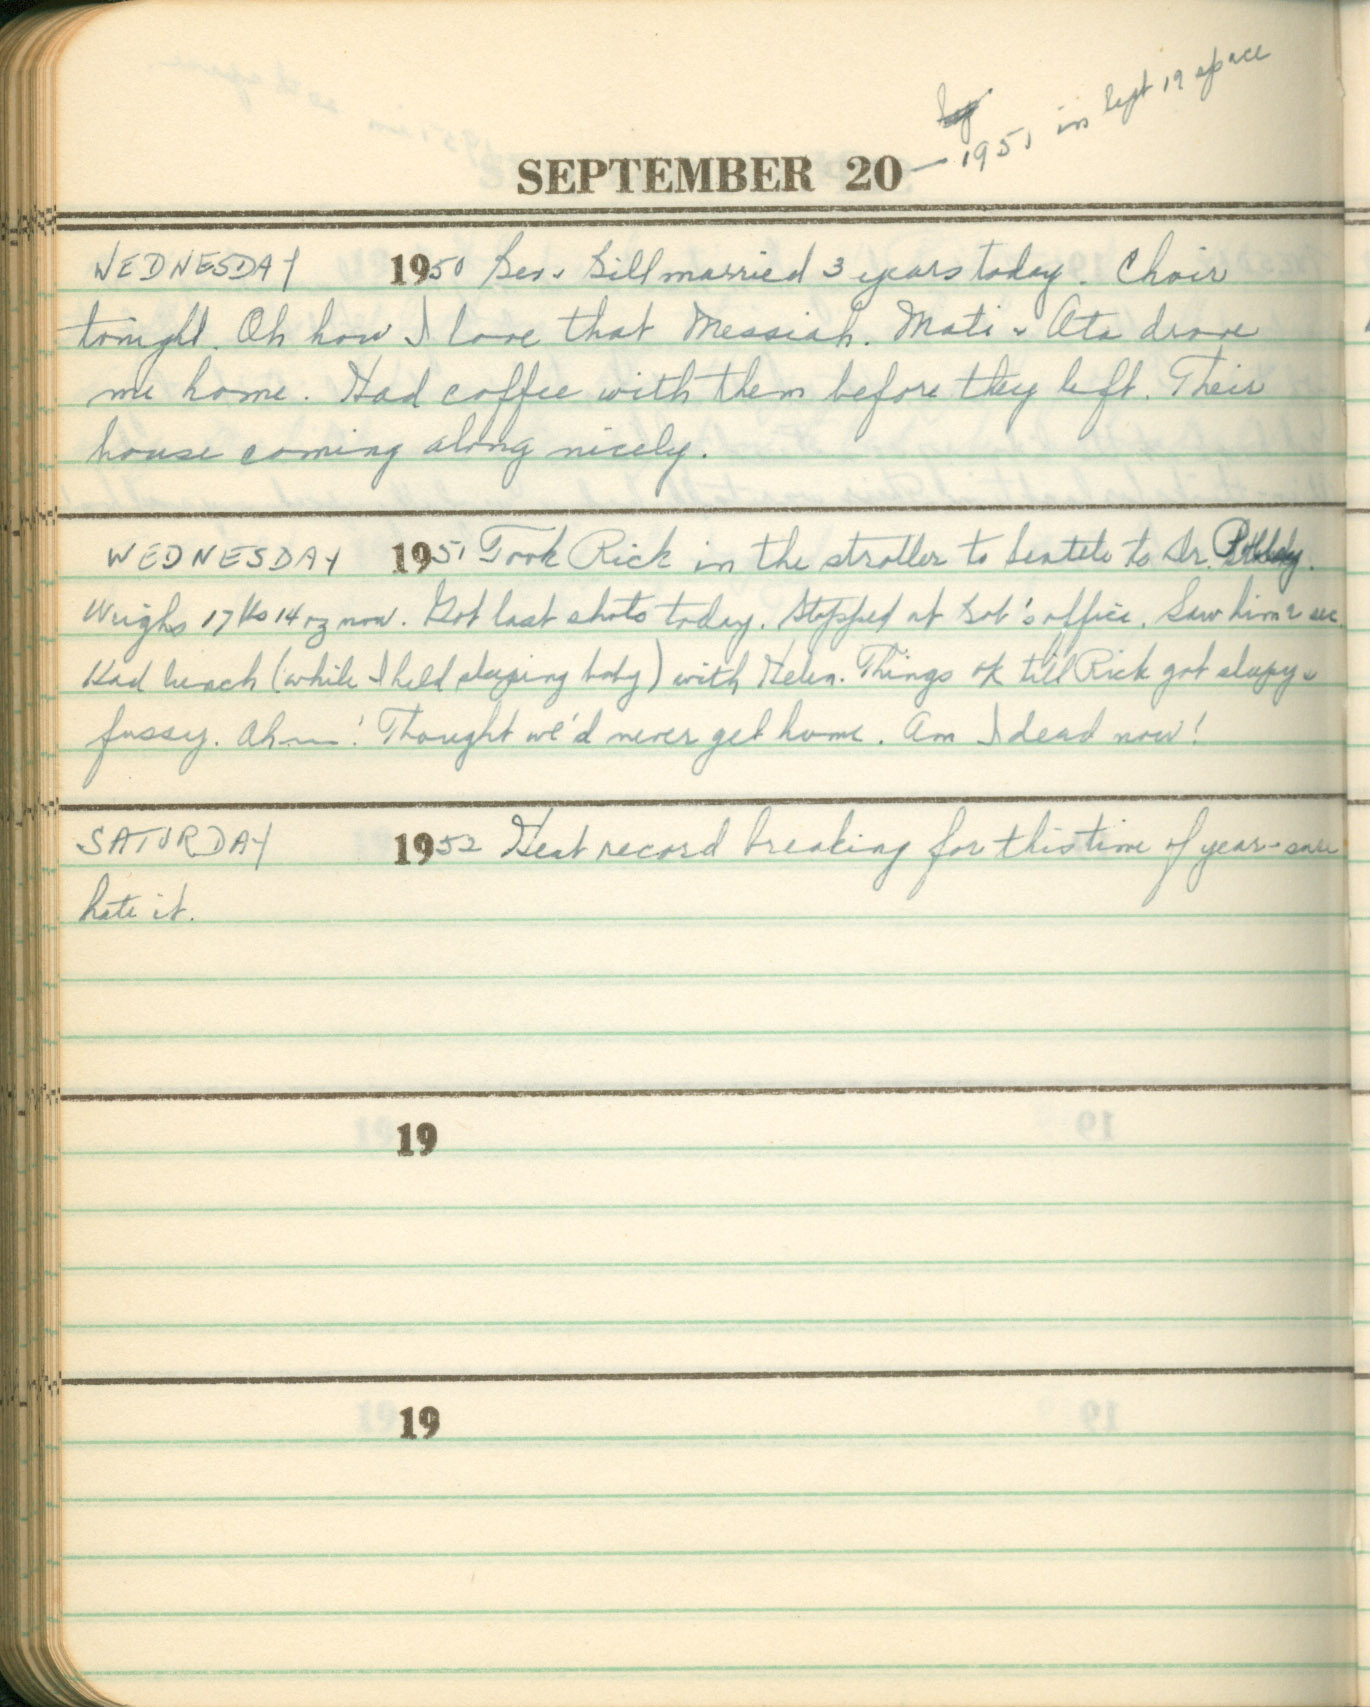 1951 in Sept 19 space
SEPTEMBER 20 —
WEDNESDAY 1950 Bev & Bill married 3 years today. Choir
tonight. Oh how I love that Messiah. Mati & Ata drove
me home. Had coffee with them before they left. Their
house coming along nicely.
WEDNESDAY 1951 Took Rick in the stroller to Seattle to Dr.
Weighs 17 lbs 14 oz now. Got last shots today. Stopped at Bob's office. Saw him 2 sec.
Had lunch (while I held sleeping baby) with Helen. Things ok till Rick got sleepy &
fussy. Ah—! Thought we'd never get home. Am I dead now!
SATURDAY 1952 Heat record breaking for this time of year - sure
hate it.
19
19